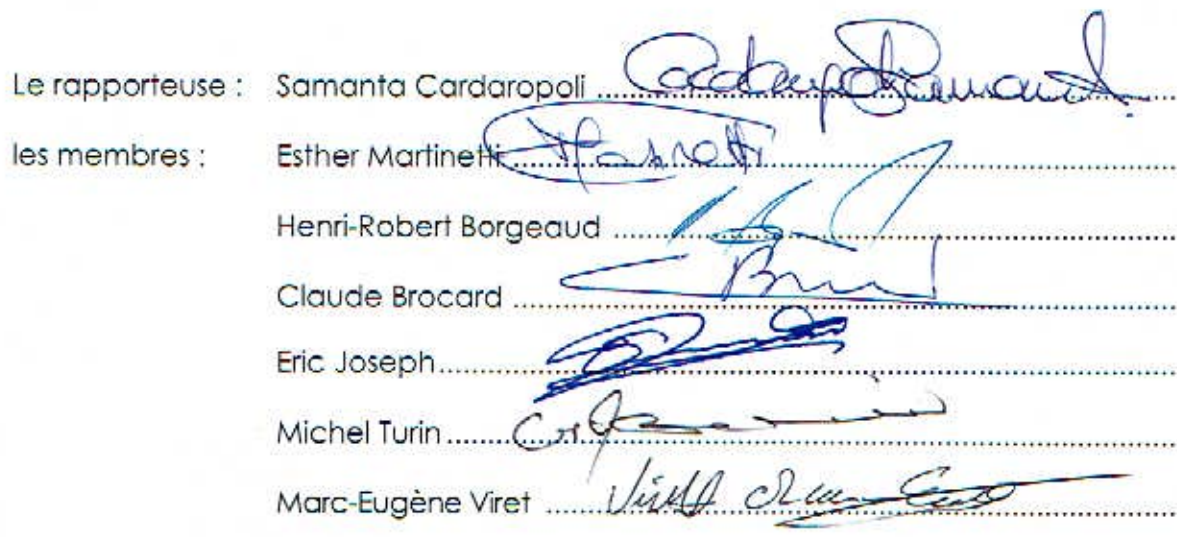 Le rapporteuse : Samanta Cardaropoli ..............................
les membres : Esther Martinetti ..............................
Henri-Robert Borgeaud ..............................
Claude Brocard ..............................
Eric Joseph ..............................
Michel Turin ..............................
Marc-Eugène Viret ..............................